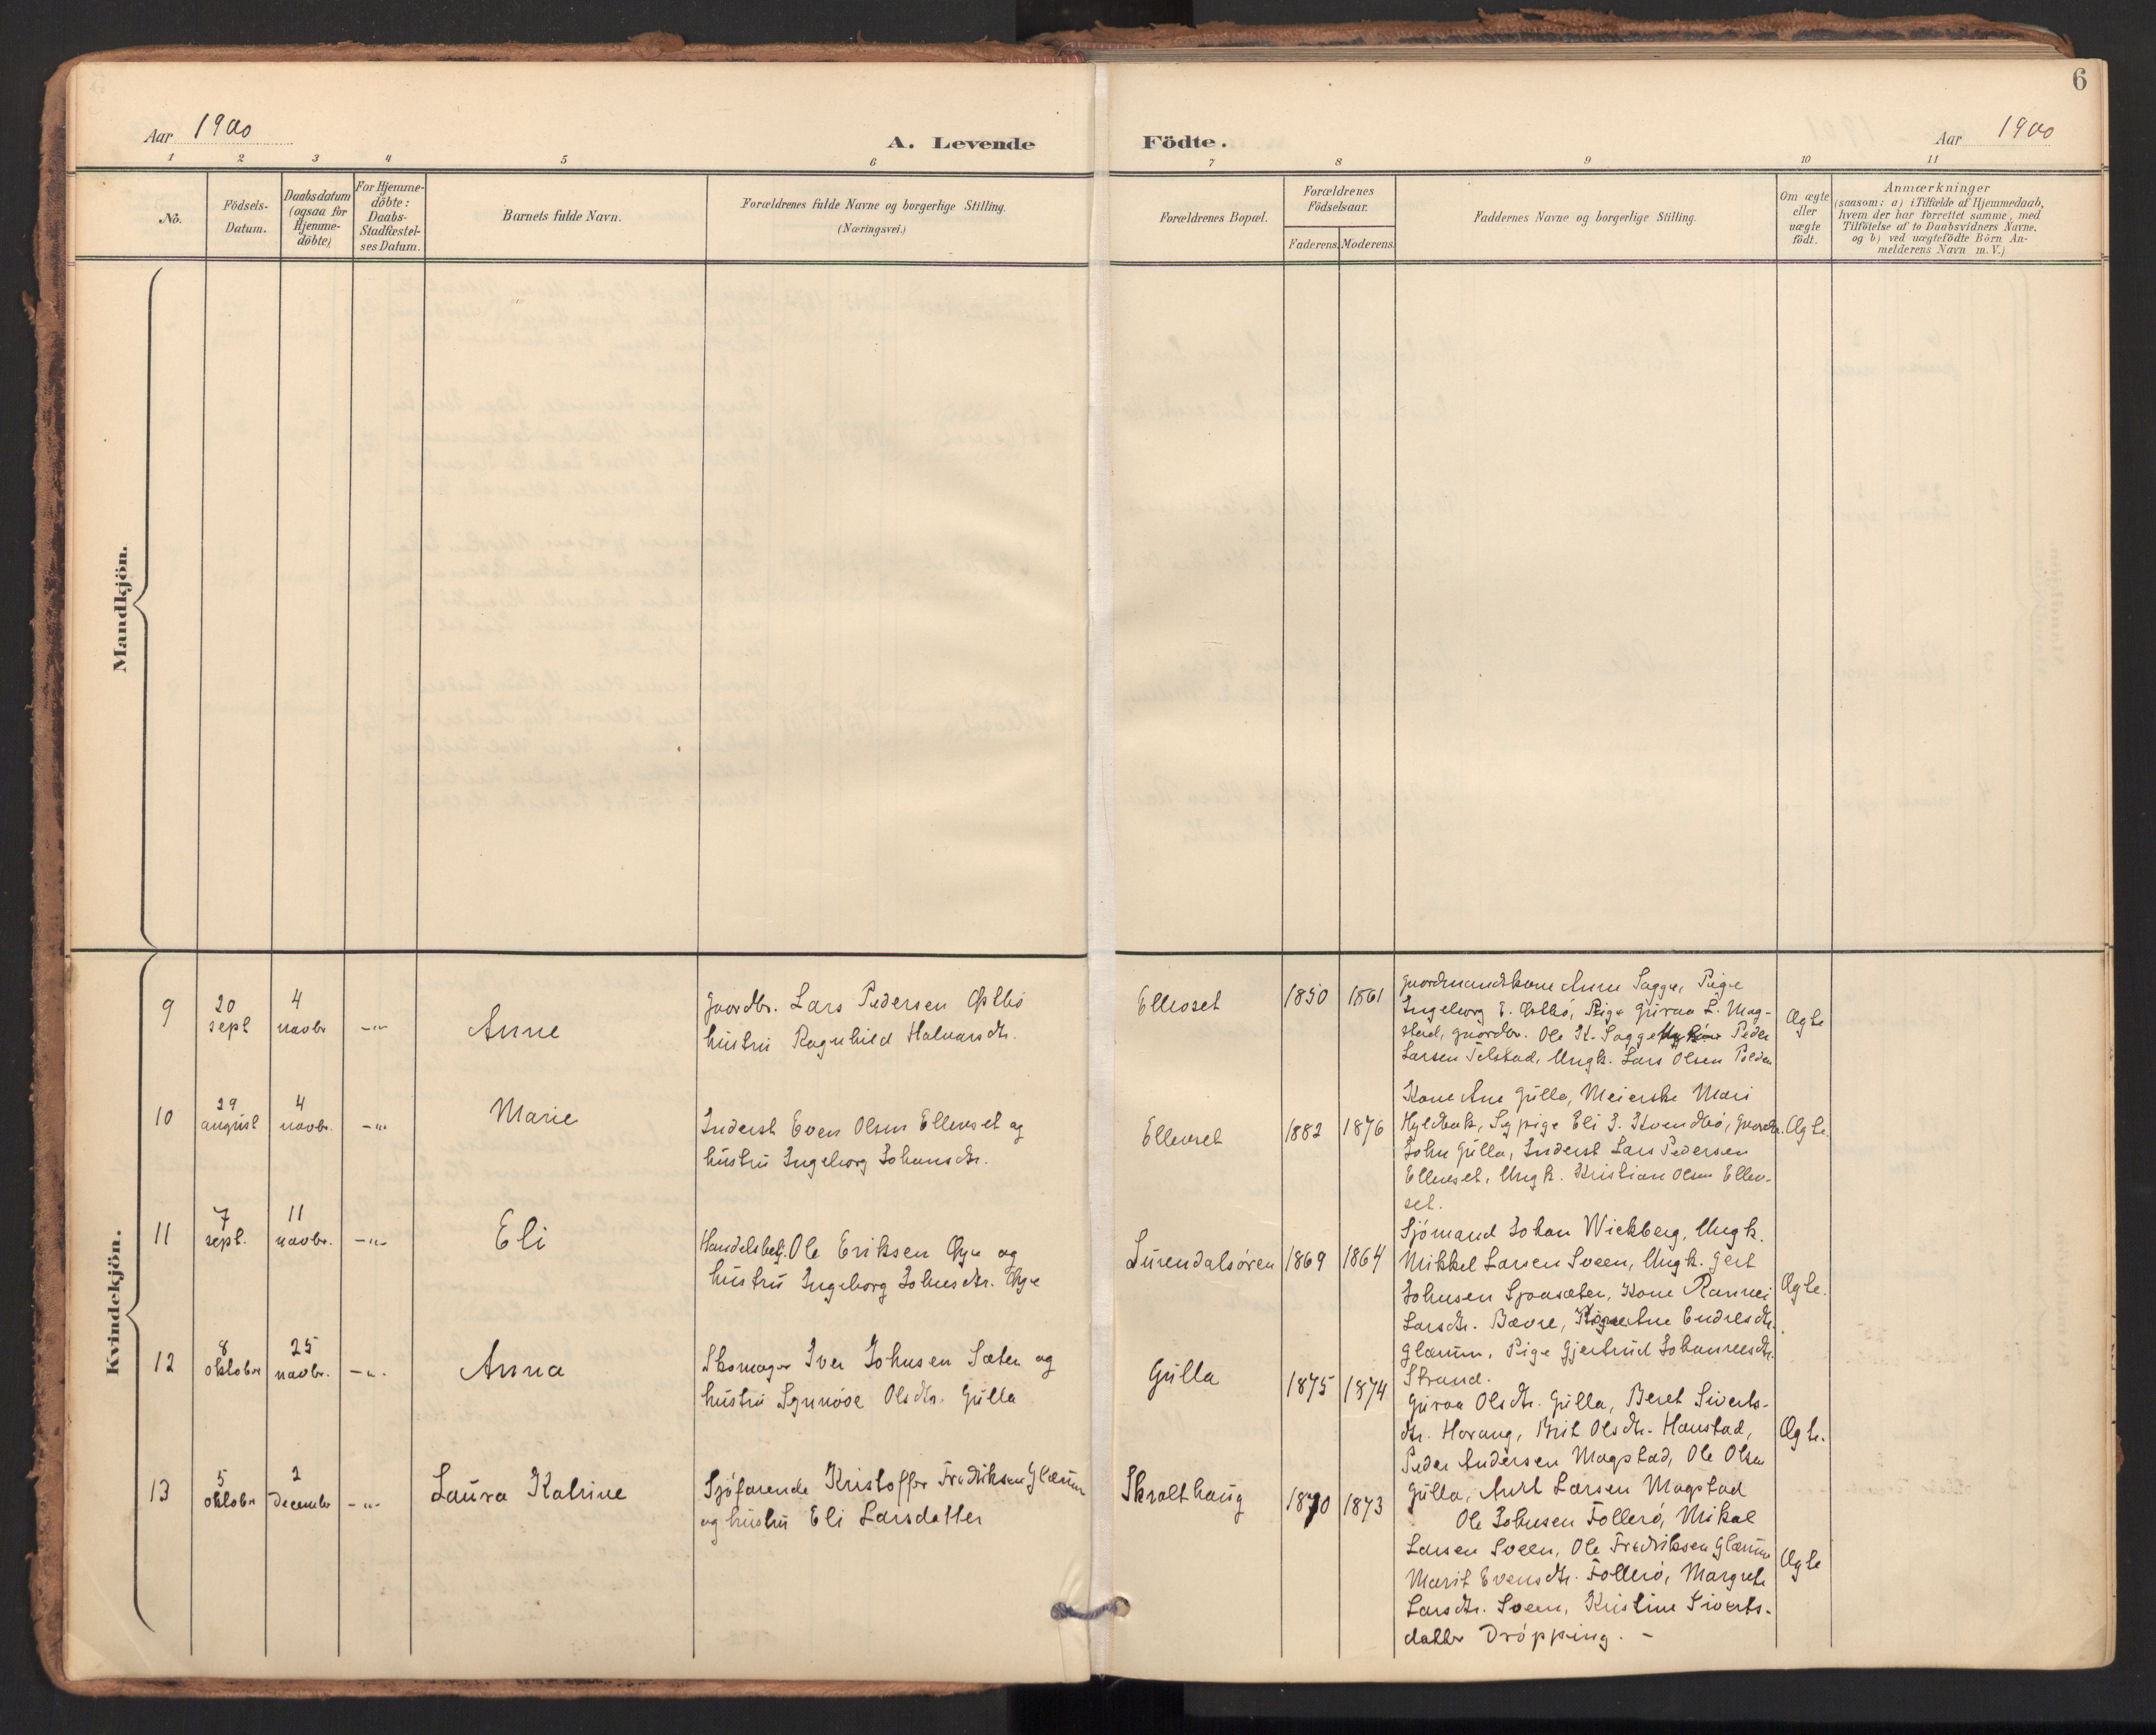 6
Aar 1900
A. Levende
Födte.
Aar 1900
1 2 3 4 5 6 7 8 9 10 11
No.
Födsels-
Datum.
Daabsdatum
(ogsaa for
Hjemme-
döbte)
For Hjemme-
döbte:
Daabs-
Stadfæstel-
ses Datum.
Barnets fulde Navn.
Forældrenes fulde Navne og borgerlige Stilling.
(Næringsvei.)
Forældrenes Bopæl.
Forældrenes
Födselsaar.
Faderens. Moderens.
Faddernes Navne og borgerlige Stilling.
Om ægte
eller
uægte
födt.
Anmærkninger
(saasom: a) i Tilfælde af Hjemmedaab,
hvem der har forrettet samme, med
Tilföielse af to Daabsvidners Navne.
og b) ved uægtefödte Börn An-
melderens Navn m. V.)
Mandkjön.
Kvindekjön.
9
20
sept
4
novbr
-"-
Anne
Gaardbr. Lars Pedersen Østbö
hustru Ragnhild Halvorsdtr.
Ellevset
1850
1861
Gaardmandskone Anne Sagge, Pige
Ingeborg E. Østbö, Pige Guroa L. Mog-
stad, gaardbr. Ole K. Sagge Peder
Larsen Telstad, Ungk. Lars Olsen
Ægte
10
29
august
4
novbr.
-"-
Marie
Inderst Even Olsen Ellevset og
hustru Ingeborg Johansdtr.
Ellevset
1882
1876
Kone Ane Gulla, Meierske Mari
Hyldbak, Sypige Eli J. Kvendbö, gaardbr.
John Gulla, Inderst Lars Pedersen
Ellevset, Ungk. Kristian Olsen Ellev-
set.
Ægte.
11
7
sept.
11
novbr.
-"-
Eli
Handelsbetj. Ole Eriksen Øye og
hustru Ingeborg Johnsdtr. Øye
Surendalsøren
1869
1864
Sjömand Johan Wickberg, Ungk.
Mikkel Larsen Sveen, Ungk. Gert
Johnsen Sjoasæter, Kone Rannei
Larsdtr. Bævre, Pige Ane Endresdtr.
Glærum, Pige Gjertrud Johannesdtr.
Strand.
Ægte.
12
8
oktober
25
novbr.
-"-
Anna
Skomager Iver Johnsen Sæter og
hustru Synnöve Olsdtr. Gulla
Gulla
1875
1874
Guroa Olsdtr. Gulla, Beret Siverts-
dtr. Harang, Brit Olsdtr. Hanstad,
Peder Andersen Mogstad, Ole Olsen
Gulla, Arnt Larsen Mogstad
Ægte.
13
5
oktober
2
December
-"-
Laura Katrine
Sjöfarende Kristoffer Fredriksen Glærum
og hustru Eli Larsdatter
Skralthaug
1870
1873
Ole Johnsen Follerö, Mikal
Larsen Sveen, Ole Fredriksen Glærum
Marit Evensdtr. Follerö, Margrete
Larsdtr. Sveen, Kristine Siverts-
datter Dröpping. -
Ægte